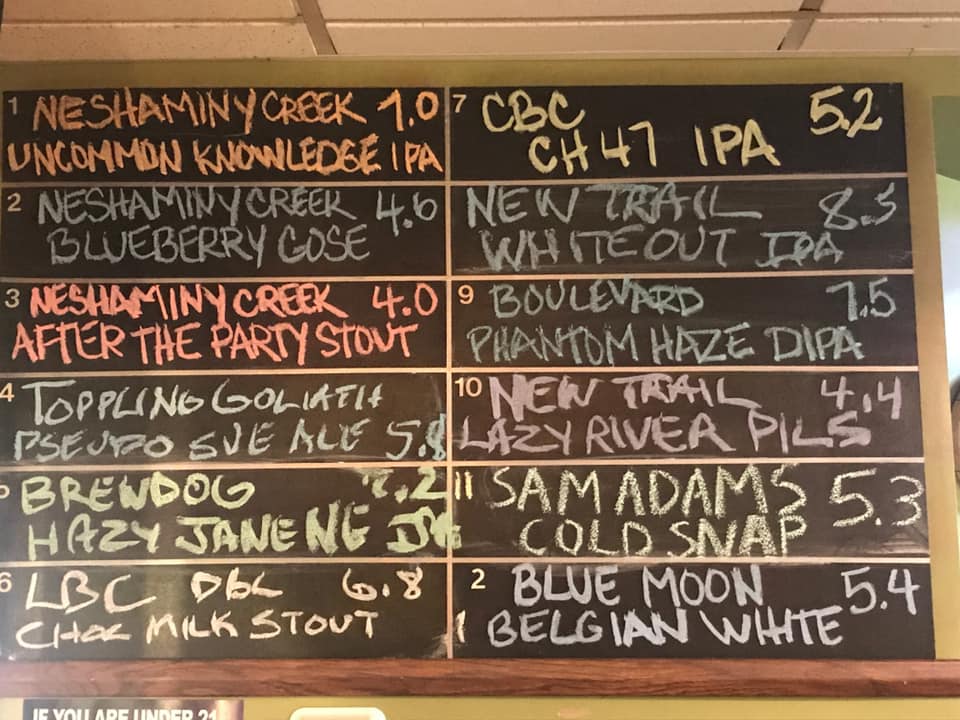 1 NESHAMINY CREEK 7.0
UNCOMMON KNOWLEDGE IPA
2 NESHAMINY CREEK 4.6
BLUEBERRY GOSE
3 NESHAMINY CREEK 4.0
AFTER THE PARTY STOUT
4 TOPPLING GOLIATH
PSEUDO SUE ALE 5.8
5 BREWDOG 7.2
HAZY JANE NE IPA
6 LBC DBL 6.8
CHOC MILK STOUT
7 CBC 5.2
CH 47 IPA
NEW TRAIL 8.5
WHITEOUT IPA
9 BOULEVARD 7.5
PHANTOM HAZE DIPA
10 NEW TRAIL 4.4
LAZY RIVER PILS
11 SAM ADAMS 5.3
COLD SNAP
2 BLUE MOON 5.4
1 BELGIAN WHITE
IF YOU ARE UNDER 21